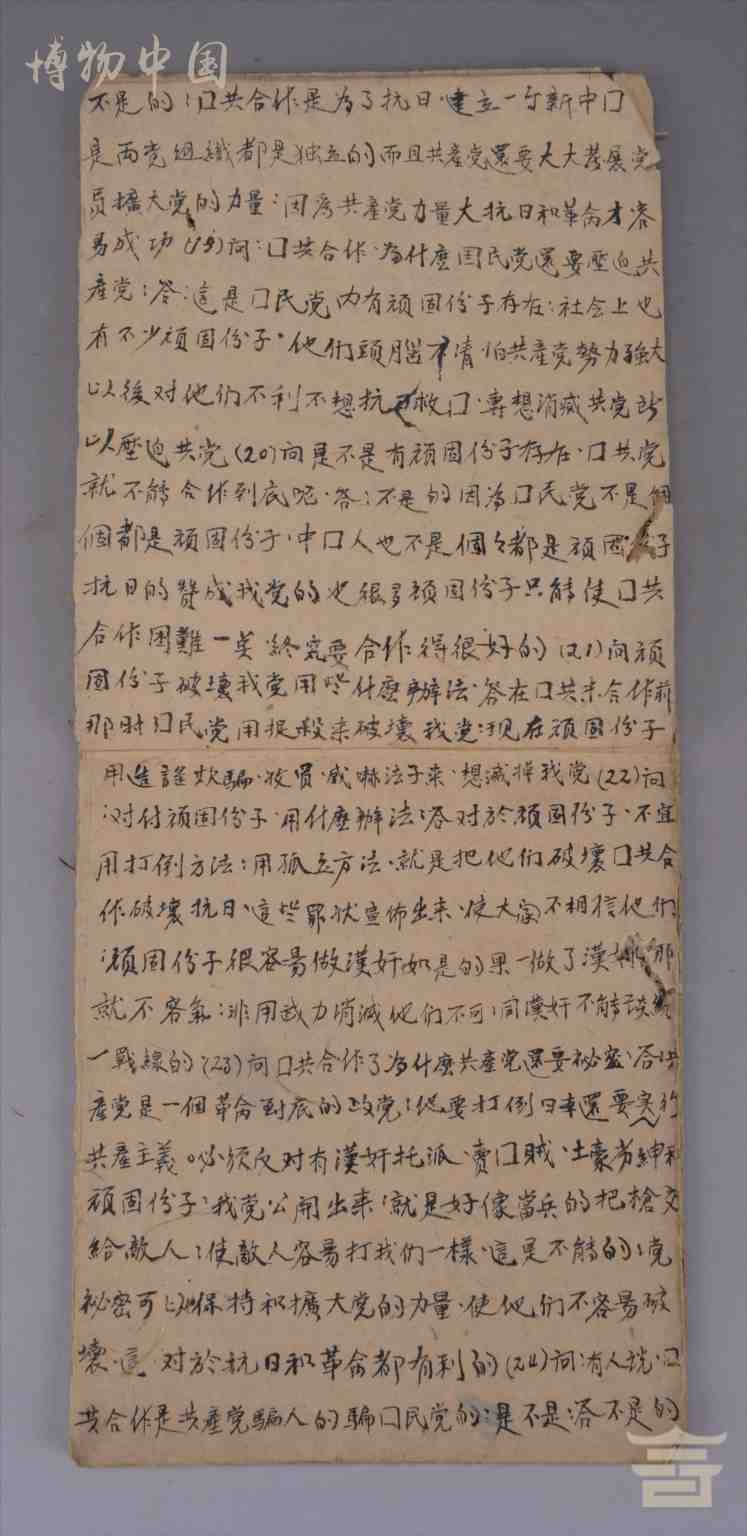 博物中国
不是的:囗共合作是為了抗日·建立一个新中囗
是两党组織都是独立的而且共產党還要大大发展党
员擴大党的力量:因為共產党力量大抗日和革命才容
易成功(19)问:囗共合作·為什麽国民党還要壓迫共
產党:答:這是囗民党内有頑固份子存在:社会上也
有不少頑固份子·他们頭腦不清怕共產党勢力強大
以後对他们不利不想抗日救囗·專想消滅共党所
以壓迫共党(20)问是不是有頑固份子存在·囗共党
就不能合作到底呢·答:不是的因為囗民党不是個
個都是頑固份子·中囗人也不是個々都是頑固份子
抗日的贊成我党的也很多頑固份子只能使囗共
合作困難一些 終究要合作得很好的(21)问頑
固份子破壞我党用些什麽辦法·答在囗共未合作前
那时囗民党用捉殺来破壞我党:现在頑固份子
用造謡欺騙·收買·威嚇法子来·想滅掉我党(22)问
:对付頑固份子·用什麽辦法:答对於頑固份子·不宜
用打倒方法:用孤立方法·就是把他们破壞囗共合
作破壞抗日·這些罪状宣佈出来·使大家不相信他们
:頑固份子很容易做漢奸如是的果一做了漢奸那
就不客氣:非用武力消滅他们不可:同漢奸不能談統
一戰線的(23)问囗共合作了為什麽共產党還要秘密:答共
產党是一個革命到底的政党:他要打倒日本還要实行
共產主義。必须反对有漢奸托派·賣囗賊·土豪劣紳和
頑固份子:我党公開出来:就是好像當兵的把槍交
給敵人:使敵人容易打我们一樣·這是不能的:党
秘密可以保持和擴大党的力量·使他们不容易破
壞·這 对於抗日和革命都有利的(24)问:有人説·囗
共合作是共產党騙人的騙囗民党的:是不是:答不是的